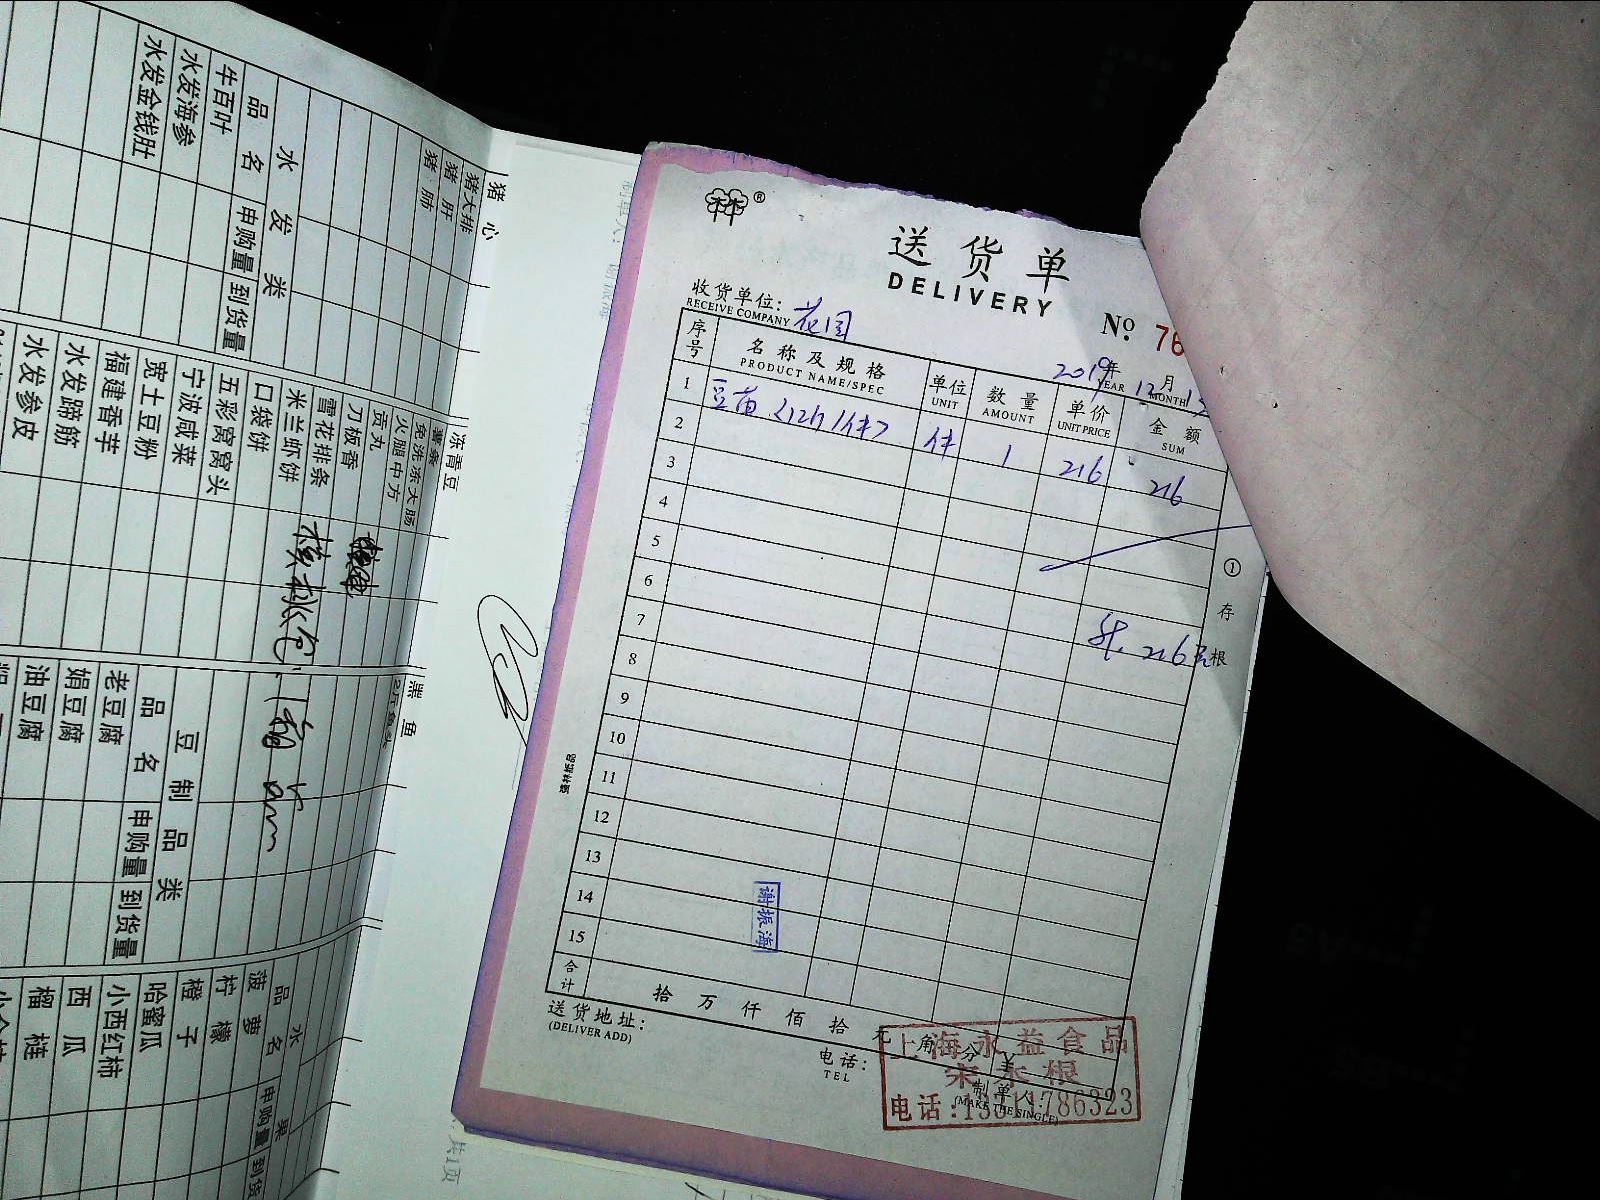 送货单
DELIVERY
No. 76
收货单位: 花园
RECEIVE COMPANY
2019年 12月
YEAR MONTH
序号 名称及规格 单位 数量 单价 金额
PRODUCT NAME/SPEC UNIT AMOUNT UNIT PRICE SUM
1 豆苗 件 1 216 216
2
3
4
5
6
7
8
9
10
11
12
13
14
15
共. 216元
① 存根
谢振海
合计 拾 万 仟 佰 拾 元 角 分 ¥
送货地址:
(DELIVER ADD)
电话:
TEL
制单人:
(MAKE THE SINGLE)
上海永益食品
宋永根
电话:
猪心
猪大排
猪肝
猪肺
水发类
品名 申购量 到货量
牛百叶
水发海参
水发金钱肚
冻青豆
薯条
免洗冻大肠
火腿中方
贡丸
刀板香
雪花排条
米兰虾饼
口袋饼
五彩窝窝头
宁波咸菜
宽土豆粉
福建香芋
水发蹄筋
水发参皮
核桃包
黑鱼
豆制品类
品名 申购量 到货量
老豆腐
娟豆腐
油豆腐
水果
品名 申购量 到货
菠萝
柠檬
橙子
哈蜜瓜
小西红柿
西瓜
榴梿
共1页